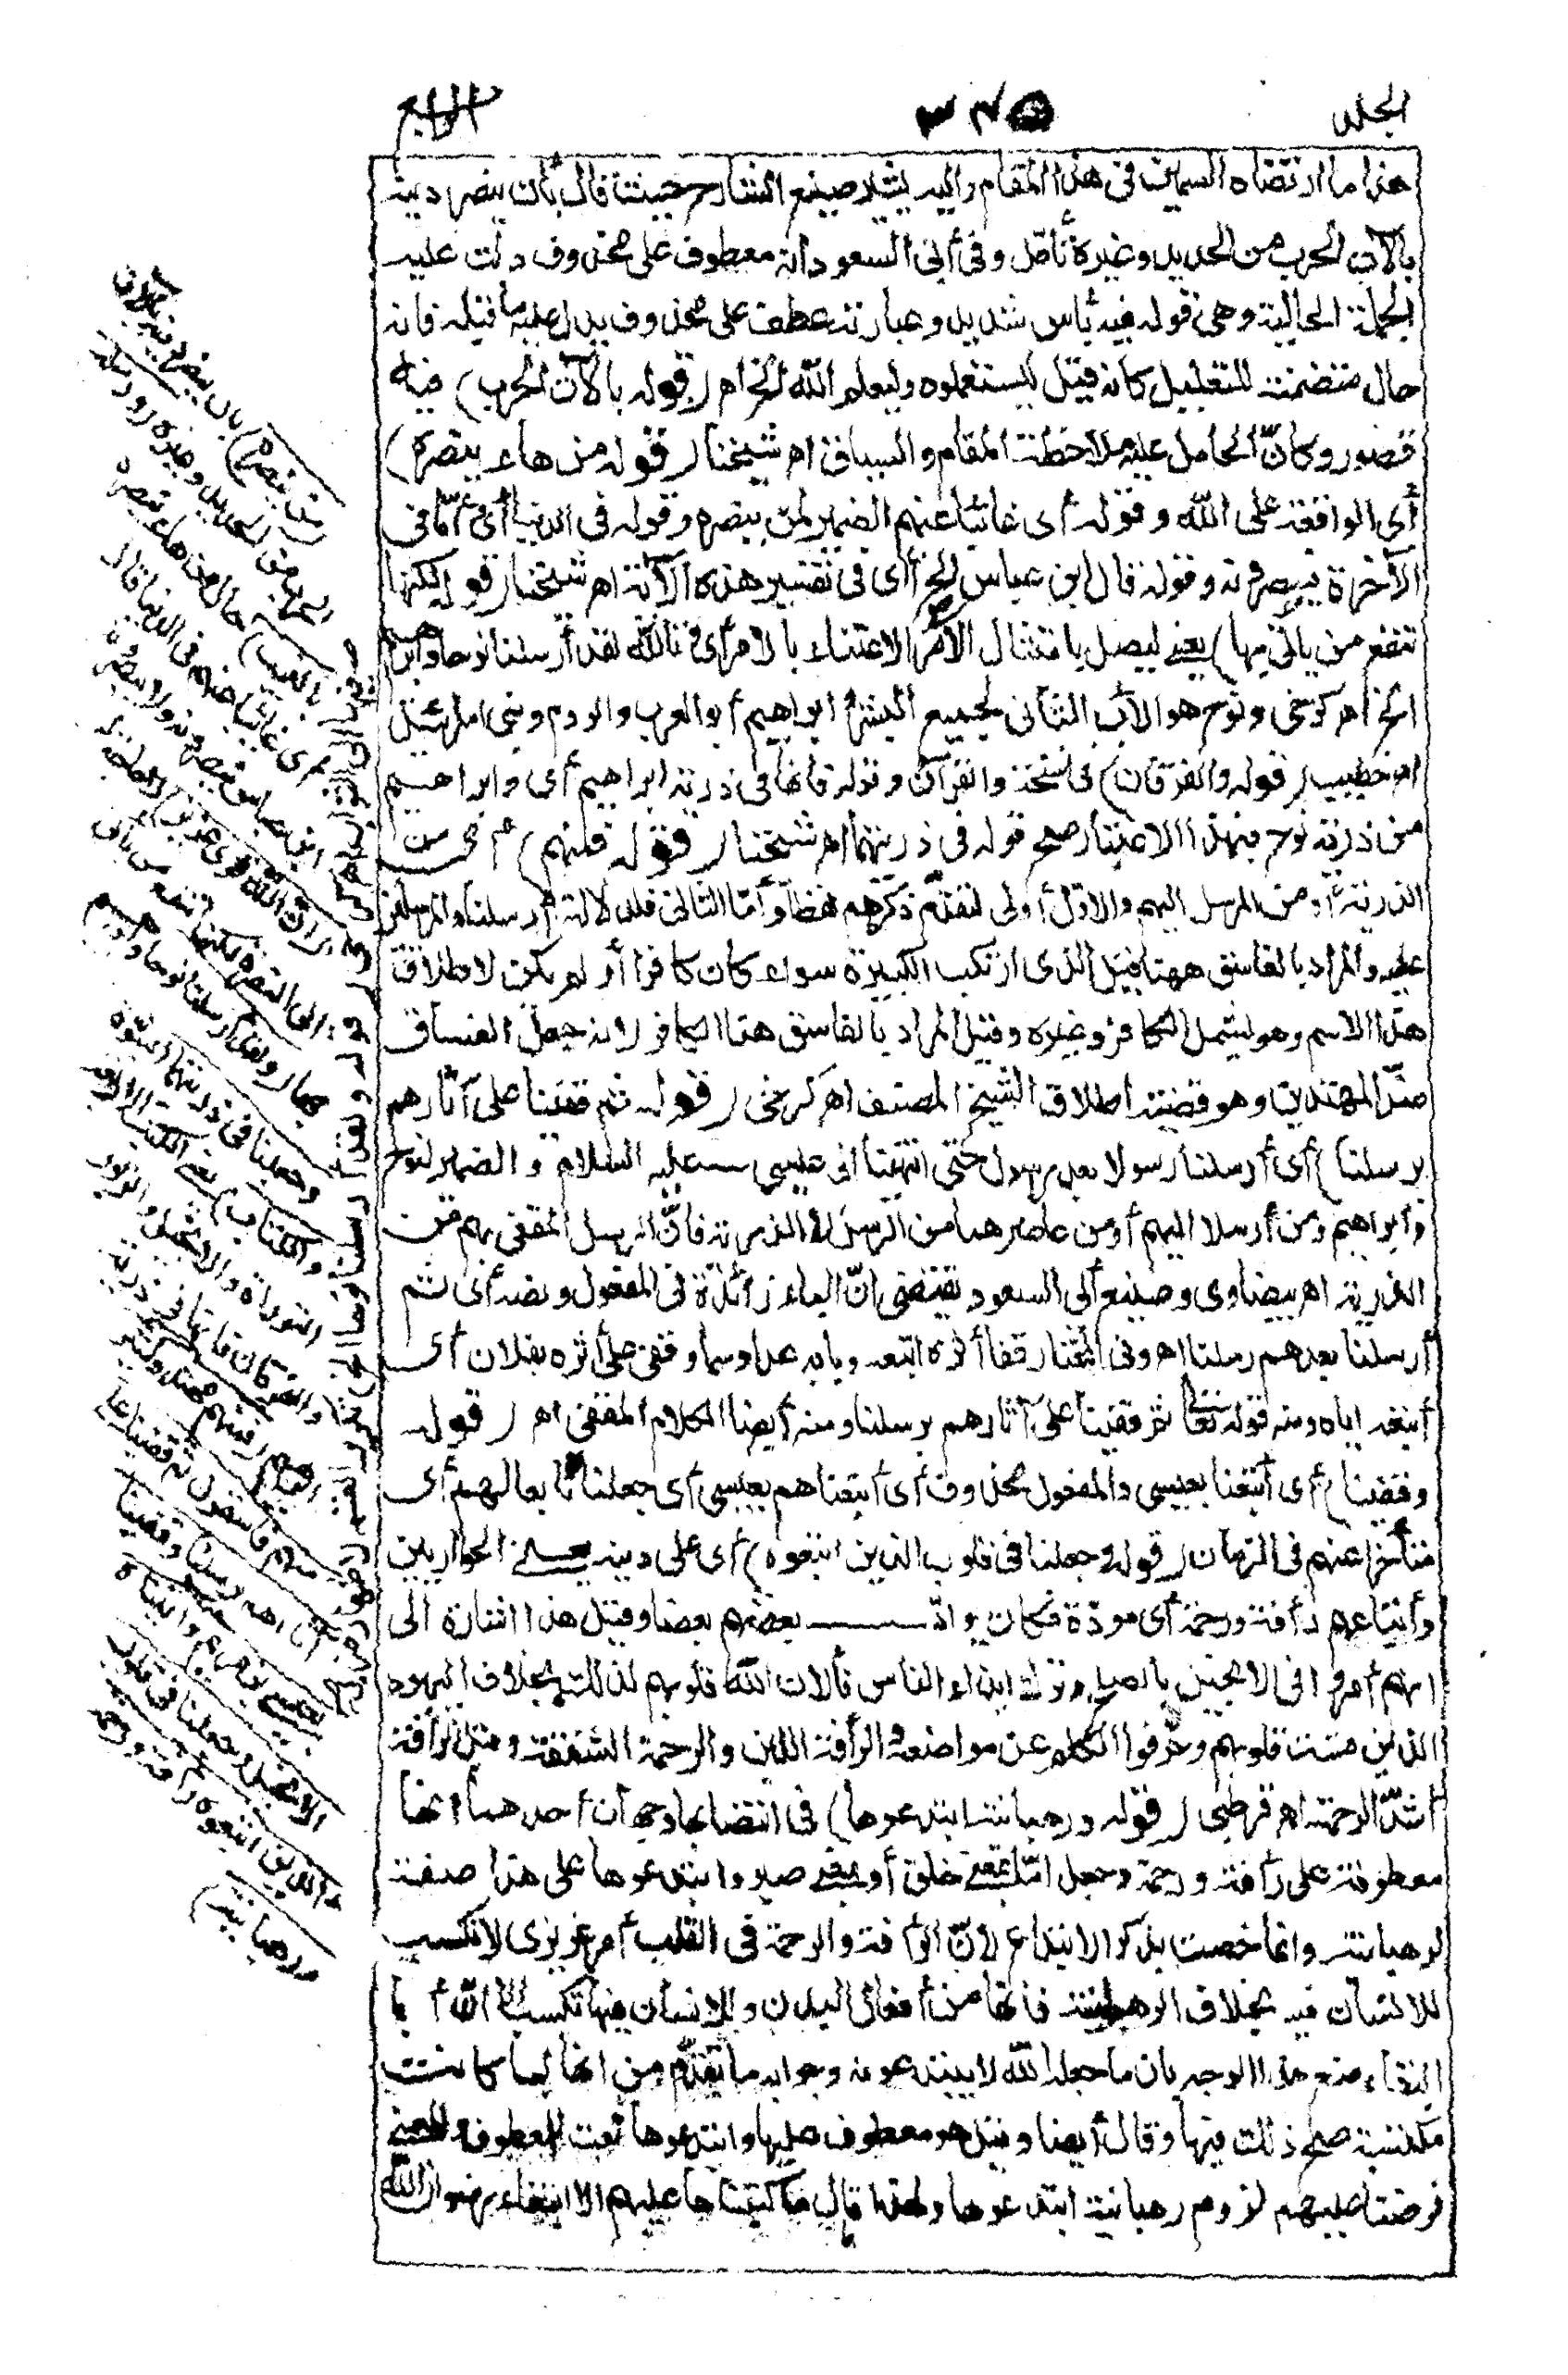 الجلد
الرابع
هذا ما ارتضاه السمين في هذا المقام واليه يشير صنيع الشارح حيث قال بأن ينصر دينه
بآلات الحرب من الحديد وغيره تأمّل وفى أبى السعود انه معطوف على محذوف دلت عليه
الجملة الحالية وهى قوله فيه بأس شديد وعبارته عطف على محذوف يدل عليه ما قبله فانه
حال متضمنة للتعليل كانه قيل ليستعملوه وليعلم الله الخ اه (قوله بآلات الحرب) فيه
قصور وكأنّ الحامل عليه ملاحظة المقام والسياق اه شيخنا (قوله من هاء ينصره)
أى الواقعة على الله وقوله أى غائبا عنهم الضمير لمن ينصره وقوله فى الدنيا أى أمّا فى
الآخرة فيبصرونه وقوله قال ابن عباس الخ أى فى تفسير هذه الآية اه شيخنا (قوله لكنها
تنفع من يأتى بها) يعنى ليصل بامتثال الأمر الاعتناء بالامر أى فتالله لقد أرسلنا نوحا وابراهيم
الخ اه كرخى ونوح هو الأب الثانى لجميع البشر وابراهيم أبو العرب والروم وبنى اسرائيل
اه خطيب (قوله والفرقان) فى نسخة والقرآن وقوله فانها فى ذرية ابراهيم أى وابراهيم
من ذرية نوح فبهذا الاعتبار صح قوله فى ذريتهما اه شيخنا (قوله فمنهم) أى من
الذرية أو من المرسل اليهم والاوّل أولى لتقدّم ذكرهم لفظا وأمّا الثانى فلدلالة أرسلنا والمرسلين
عليه والمراد بالفاسق ههنا قيل الذى ارتكب الكبيرة سواء كان كافرا أو لم يكن لاطلاق
هذا الاسم وهو يشمل الكافر وغيره وقيل المراد بالفاسق هنا الكافر لانه جعل الفساق
ضدّ المهتدين وهو قضية اطلاق الشيخ المصنف اه كرخى (قوله ثم قفينا على آثارهم
برسلنا) أى أرسلنا رسولا بعد رسول حتى انتهينا الى عيسى عليه السلام والضمير لنوح
وابراهيم ومن أرسلا اليهم أو من عاصرهما من الرسل لا الذرية فانّ الرسل المقفى بهم من
الذرية اه بيضاوى وصنيع أبى السعود يقتضى انّ الباء زائدة فى المفعول ونصه أى ثم
أرسلنا بعدهم رسلنا اه وفى المختار قفا أثره اتبعه وبابه عدا وسما وقفى على أثره بفلان أى
أتبعه اياه ومنه قوله تعالى ثم قفينا على آثارهم برسلنا ومنه أيضا الكلام المقفى اه (قوله
وقفينا) أى أتبعنا بعيسى والمفعول محذوف أى أتبعناهم بعيسى أى جعلناه تابعا لهم أى
متأخرا عنهم فى الزمان (قوله وجعلنا فى قلوب الذين اتبعوه) أى على دينه يعنى الحواريين
وأتباعهم رأفة ورحمة أى مودّة فكان يوادّ بعضهم بعضا وقيل هذا اشارة الى
انهم أمروا فى الانجيل بالصلح وترك ايذاء الناس فألان الله قلوبهم لذلك بخلاف اليهود
الذين قست قلوبهم وحرّفوا الكلم عن مواضعه والرأفة اللين والرحمة الشفقة وقيل الرأفة
أشدّ الرحمة اه قرطبى (قوله ورهبانية ابتدعوها) فى انتصابها وجهان أحدهما انها
معطوفة على رأفة ورحمة وجعل امّا بمعنى خلق أو بمعنى صير وابتدعوها على هذا صفة
لرهبانية وانما خصت بذكر الابتداع لانّ الرأفة والرحمة فى القلب أمر غريزى لا تكسب
للانسان فيه بخلاف الرهبانية فانها من أفعال البدن وللانسان فيها تكسب الا أنّ أبا
البقاء منع هذا الوجه بان ما جعله الله لا يبتدعونه وجوابه ما تقدّم من انها لما كانت
مكتسبة صح ذلك فيها وقال أيضا وقيل هو معطوف عليها وابتدعوها نعت له والمعنى
فرضنا عليهم لزوم رهبانية ابتدعوها ولهذا قال ما كتبناها عليهم الا ابتغاء رضوان الله
بان ينصر دينه بآلات
الحرب من الحديد وغيره (ورسله
بالغيب) حال من هاء ينصره
أى غائبا عنهم فى الدنيا قال
ابن عباس ينصرونه ولا يبصرونه
(ان الله قوى عزيز) لا حاجة له
الى النصرة لكنها تنفع من يأتى
بها (ولقد أرسلنا نوحا وابراهيم
وجعلنا فى ذريتهما النبوّة
والكتاب) يعنى الكتب الاربعة
التوراة والانجيل والزبور
والفرقان فانها فى ذرية
ابراهيم (فمنهم مهتد وكثير
منهم فاسقون ثم قفينا على
آثارهم برسلنا وقفينا
بعيسى بن مريم وآتيناه
الانجيل وجعلنا فى قلوب
الذين اتبعوه رأفة ورحمة
ورهبانية)